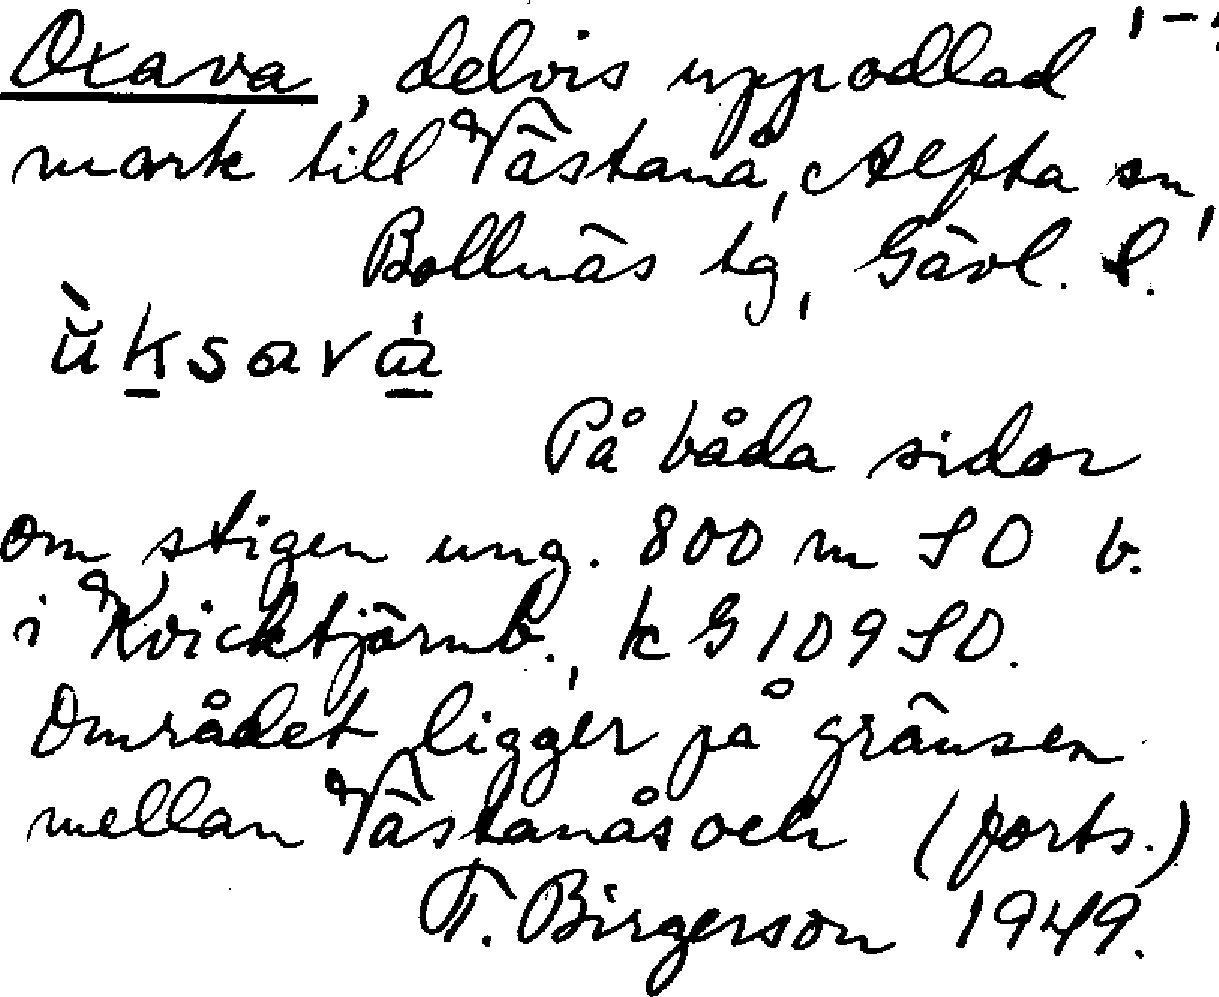 Oxava, delvis uppodlad
mark till Västanå, Alfta sn,
Bollnäs tg, Gävl. l.
ùksava
På båda sidor
om stigen ung. 800 m SO b.
i Kvicktjärnb., k G 109 SO.
Området ligger på gränsen
mellan Västanås och (forts.)
T. Birgerson 1949.